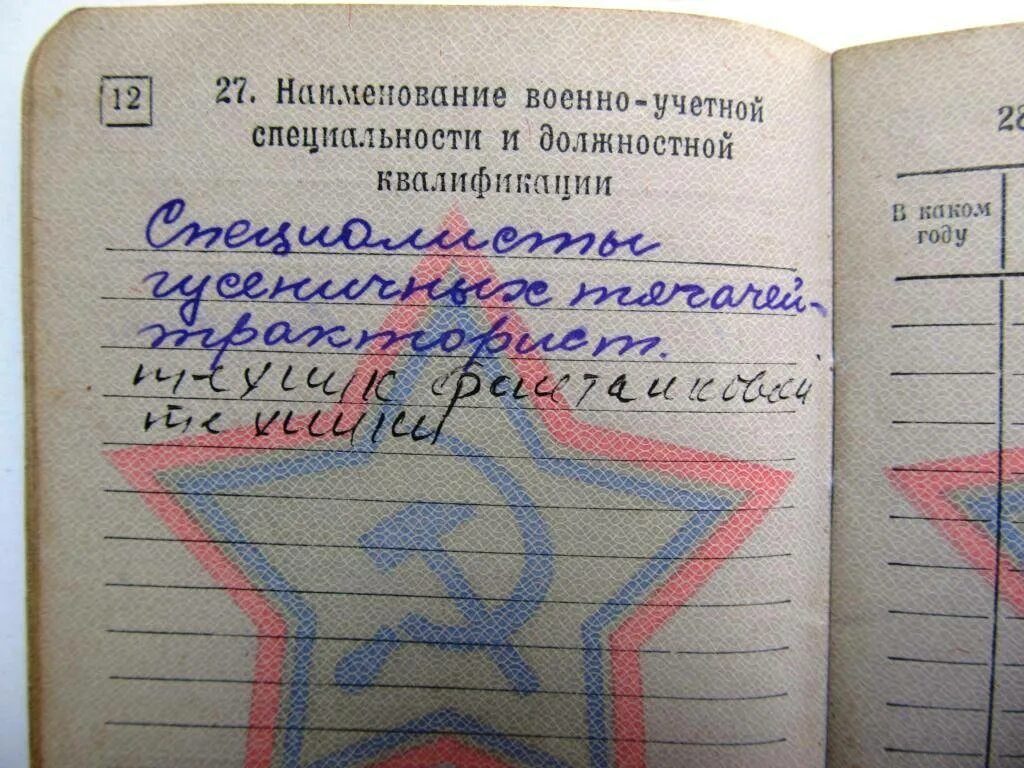 12
27. Наименование военно-учетной
специальности и должностной
квалификации
Специалисты
гусеничных тягачей-
тракторист.
техник бронетанковой
техники
28
В каком
году